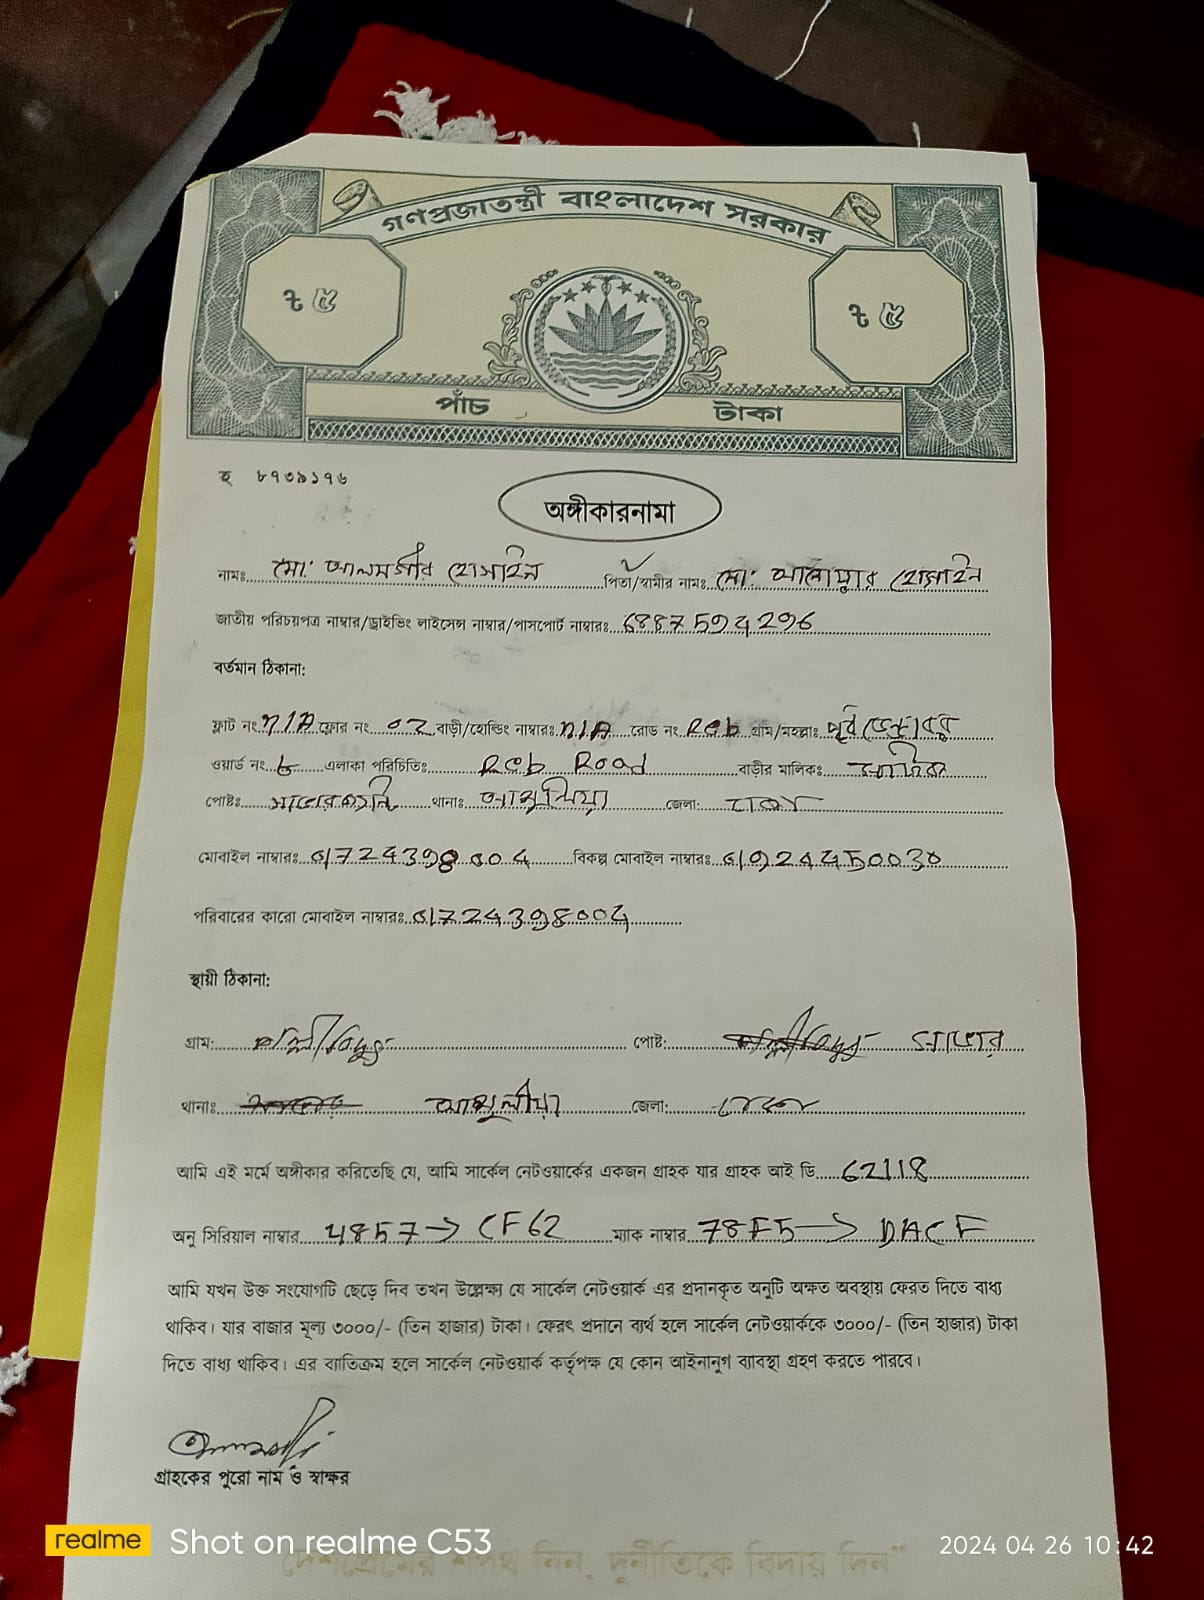 গণপ্রজাতন্ত্রী বাংলাদেশ সরকার
৳ ৫ ৳ ৫
পাঁচ টাকা
হ ৮৭৩৯১৭৬
অঙ্গীকারনামা
নামঃ মো: আলমগীর হোসাইন পিতা/স্বামীর নামঃ মো: আনোয়ার হোসাইন
জাতীয় পরিচয়পত্র নাম্বার/ড্রাইভিং লাইসেন্স নাম্বার/পাসপোর্ট নাম্বারঃ 6887594296
বর্তমান ঠিকানা:
ফ্লাট নং N/A ফ্লোর নং 02 বাড়ী/হোল্ডিং নাম্বারঃ N/A রোড নং Rab গ্রাম/মহল্লাঃ পূর্ব
ওয়ার্ড নং ৮ এলাকা পরিচিতিঃ Rab Road বাড়ীর মালিকঃ
পোষ্টঃ থানাঃ আশুলিয়া জেলা: ঢাকা
মোবাইল নাম্বারঃ 01724398004 বিকল্প মোবাইল নাম্বারঃ 01924450030
পরিবারের কারো মোবাইল নাম্বারঃ 01724398004
স্থায়ী ঠিকানা:
গ্রাম: পোষ্ট: সাভার
থানাঃ আশুলীয়া জেলা: ঢাকা
আমি এই মর্মে অঙ্গীকার করিতেছি যে, আমি সার্কেল নেটওয়ার্কের একজন গ্রাহক যার গ্রাহক আই ডি 62118
অনু সিরিয়াল নাম্বার 4857→ CF62 ম্যাক নাম্বার 78F5→ DACF
আমি যখন উক্ত সংযোগটি ছেড়ে দিব তখন উল্লেক্ষ্য যে সার্কেল নেটওয়ার্ক এর প্রদানকৃত অনুটি অক্ষত অবস্থায় ফেরত দিতে বাধ্য
থাকিব। যার বাজার মূল্য ৩০০০/- (তিন হাজার) টাকা। ফেরৎ প্রদানে ব্যর্থ হলে সার্কেল নেটওয়ার্ককে ৩০০০/- (তিন হাজার) টাকা
দিতে বাধ্য থাকিব। এর ব্যতিক্রম হলে সার্কেল নেটওয়ার্ক কর্তৃপক্ষ যে কোন আইনানুগ ব্যাবস্থা গ্রহণ করতে পারবে।
গ্রাহকের পুরো নাম ও স্বাক্ষর
realme Shot on realme C53 2024 04 26 10:42
দেশপ্রেমের শপথ নিন, দুর্নীতিকে বিদায় দিন”